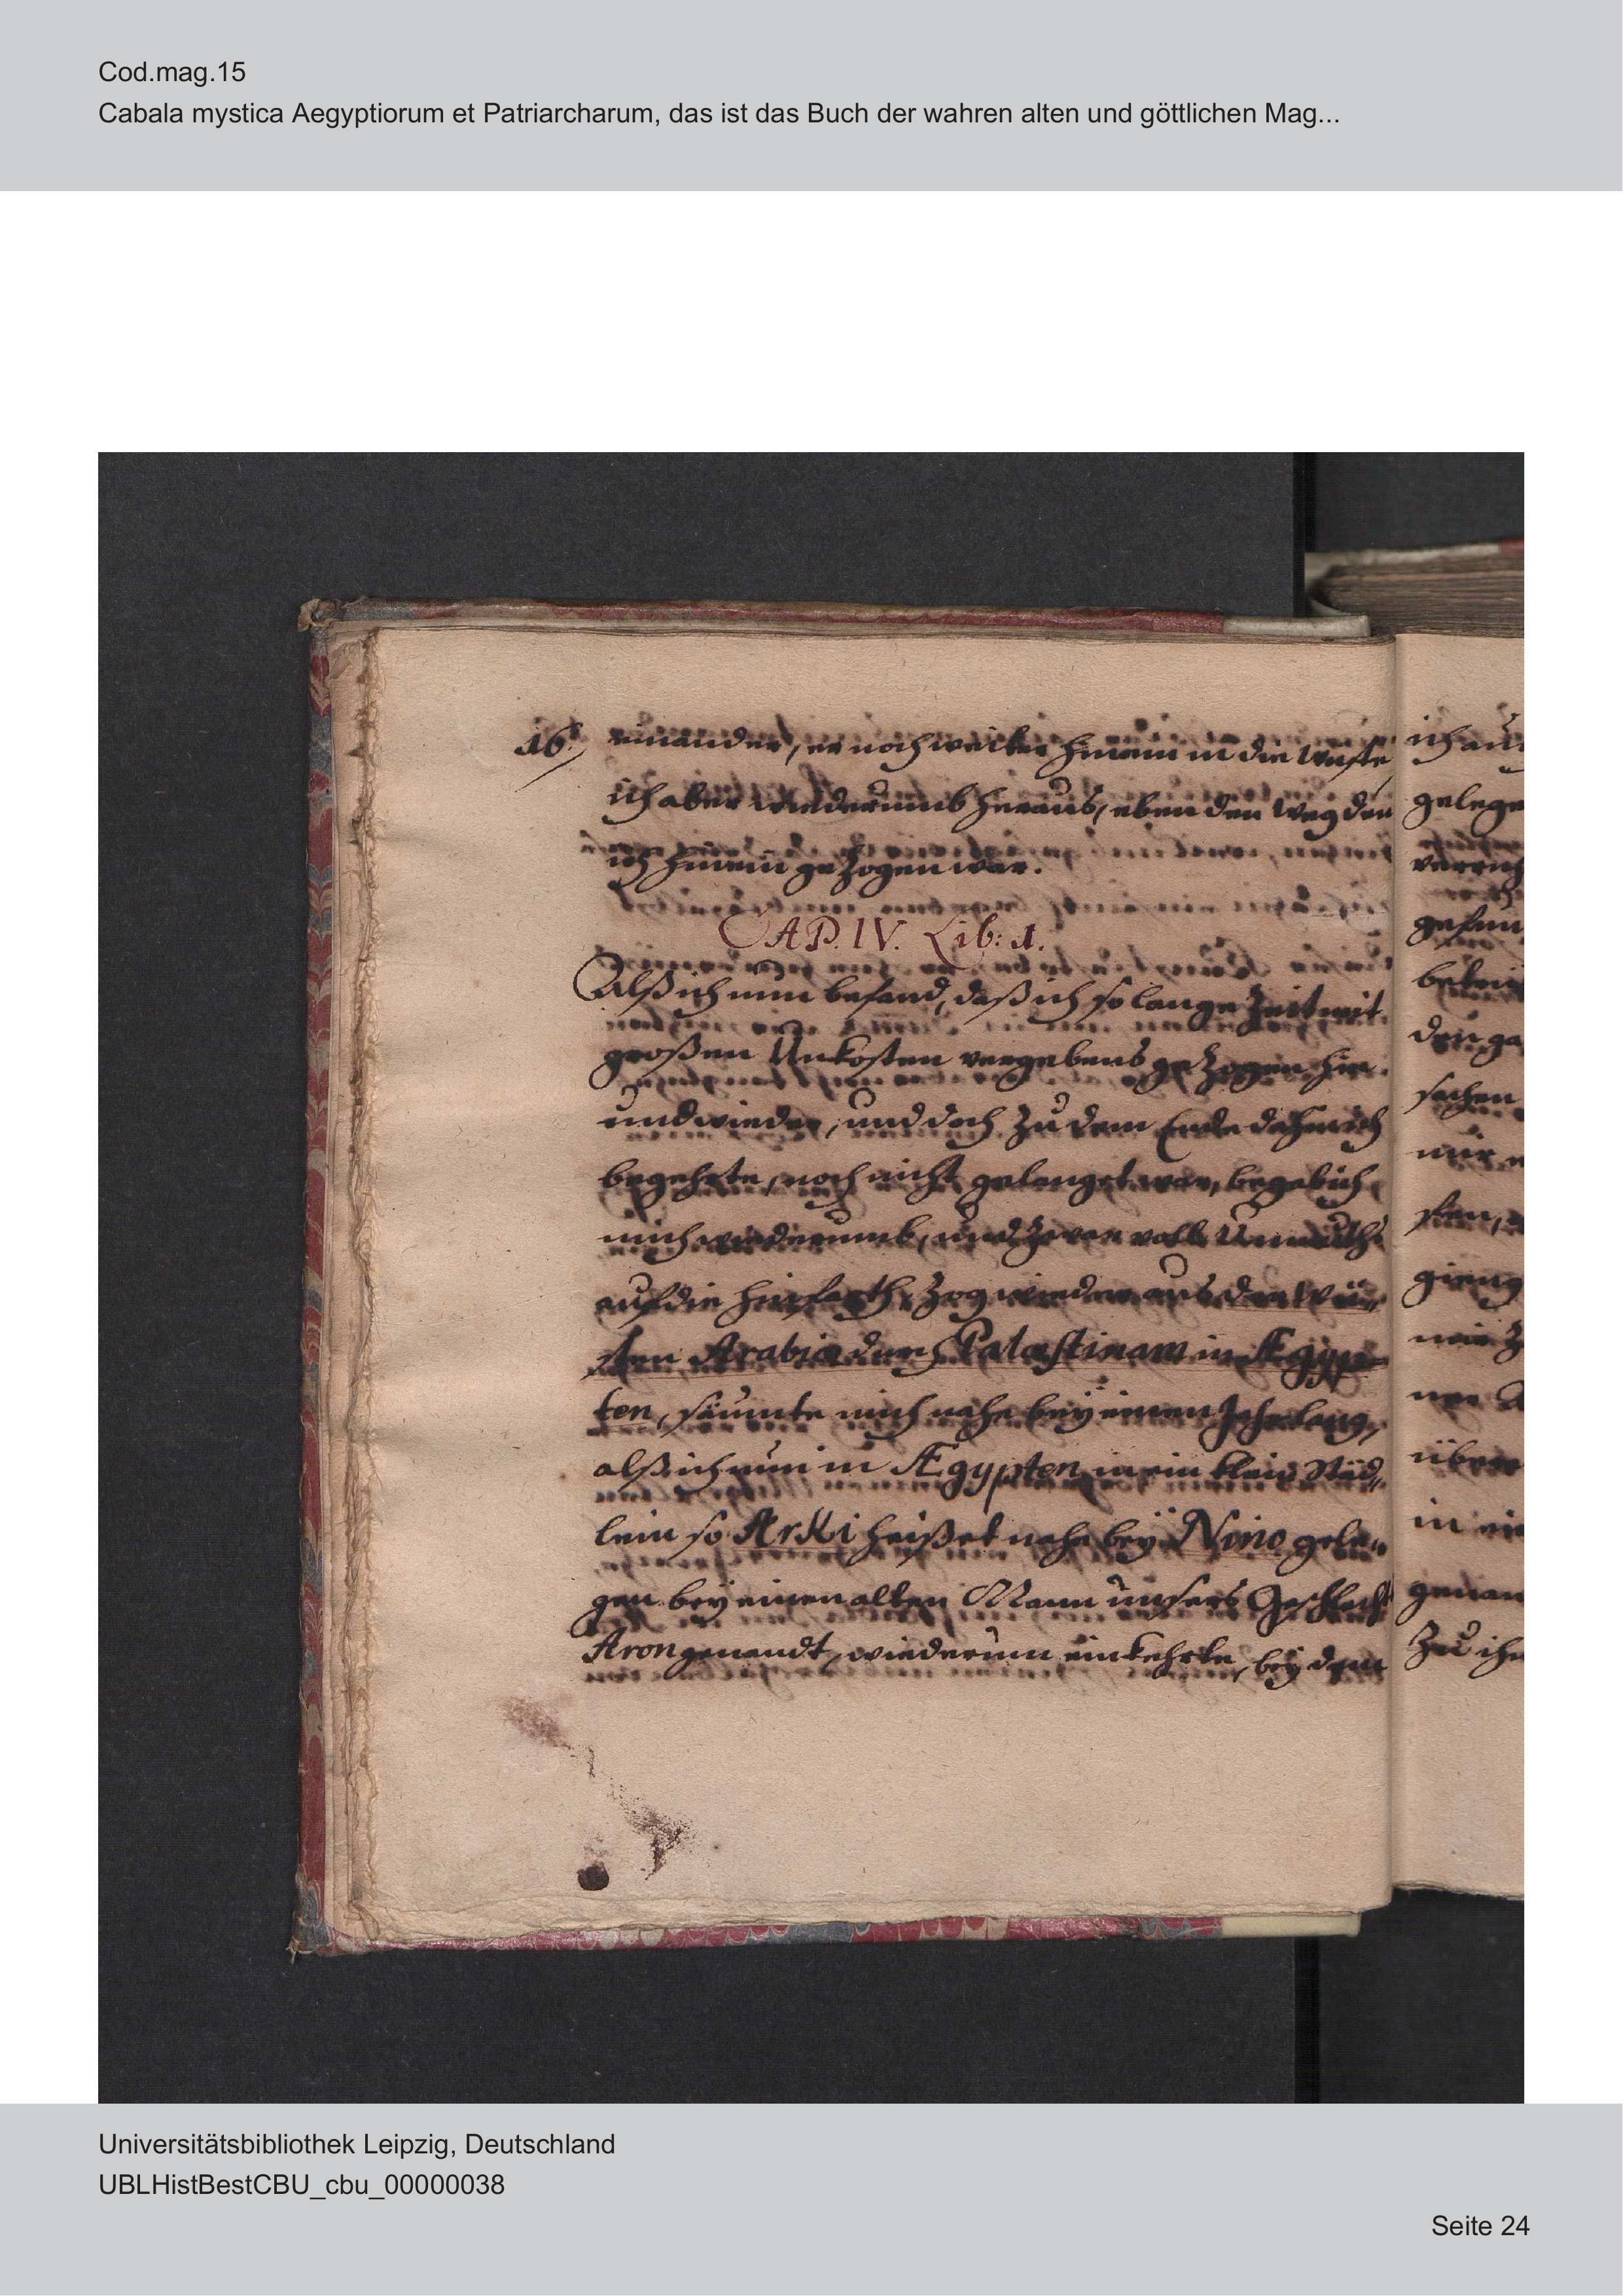 Cod.mag.15
Cabala mystica Aegyptiorum et Patriarcharum, das ist das Buch der wahren alten und göttlichen Mag...
16.
einander, er noch weiter hinein in die Wüste
ich aber wiederumb heraus, eben den Weg den
ich hinein gezogen war.
CAP. IV. Lib: 1.
Alß ich nun befand, daß ich so lange Zeit mit
großen Unkosten vergebens gezogen hin
und wieder, und doch zu dem Ende dahin ich
begehrte, noch nicht gelanget war, begab ich
mich wiederumb, und zwar voll Unmuths
auf die Heimfarth, zog wieder aus der Wü„
sten Arabia durch Palæstinam in Ægyp„
ten, säumte mich nahe beÿ einen Jahr lang,
alß ich nun in Ægypten in ein klein Städ„
lein so Arki heißet nahe beÿ Nino gele„
gen beÿ einen alten Mann unsers Geschlechts
Aron genandt, wiederum einkehrte, beÿ dem
ich auf
gelege
gefun
den ga
sachen
mir
gieng
in ein
genan
Zu ihm
Universitätsbibliothek Leipzig, Deutschland
UBLHistBestCBU_cbu_00000038
Seite 24